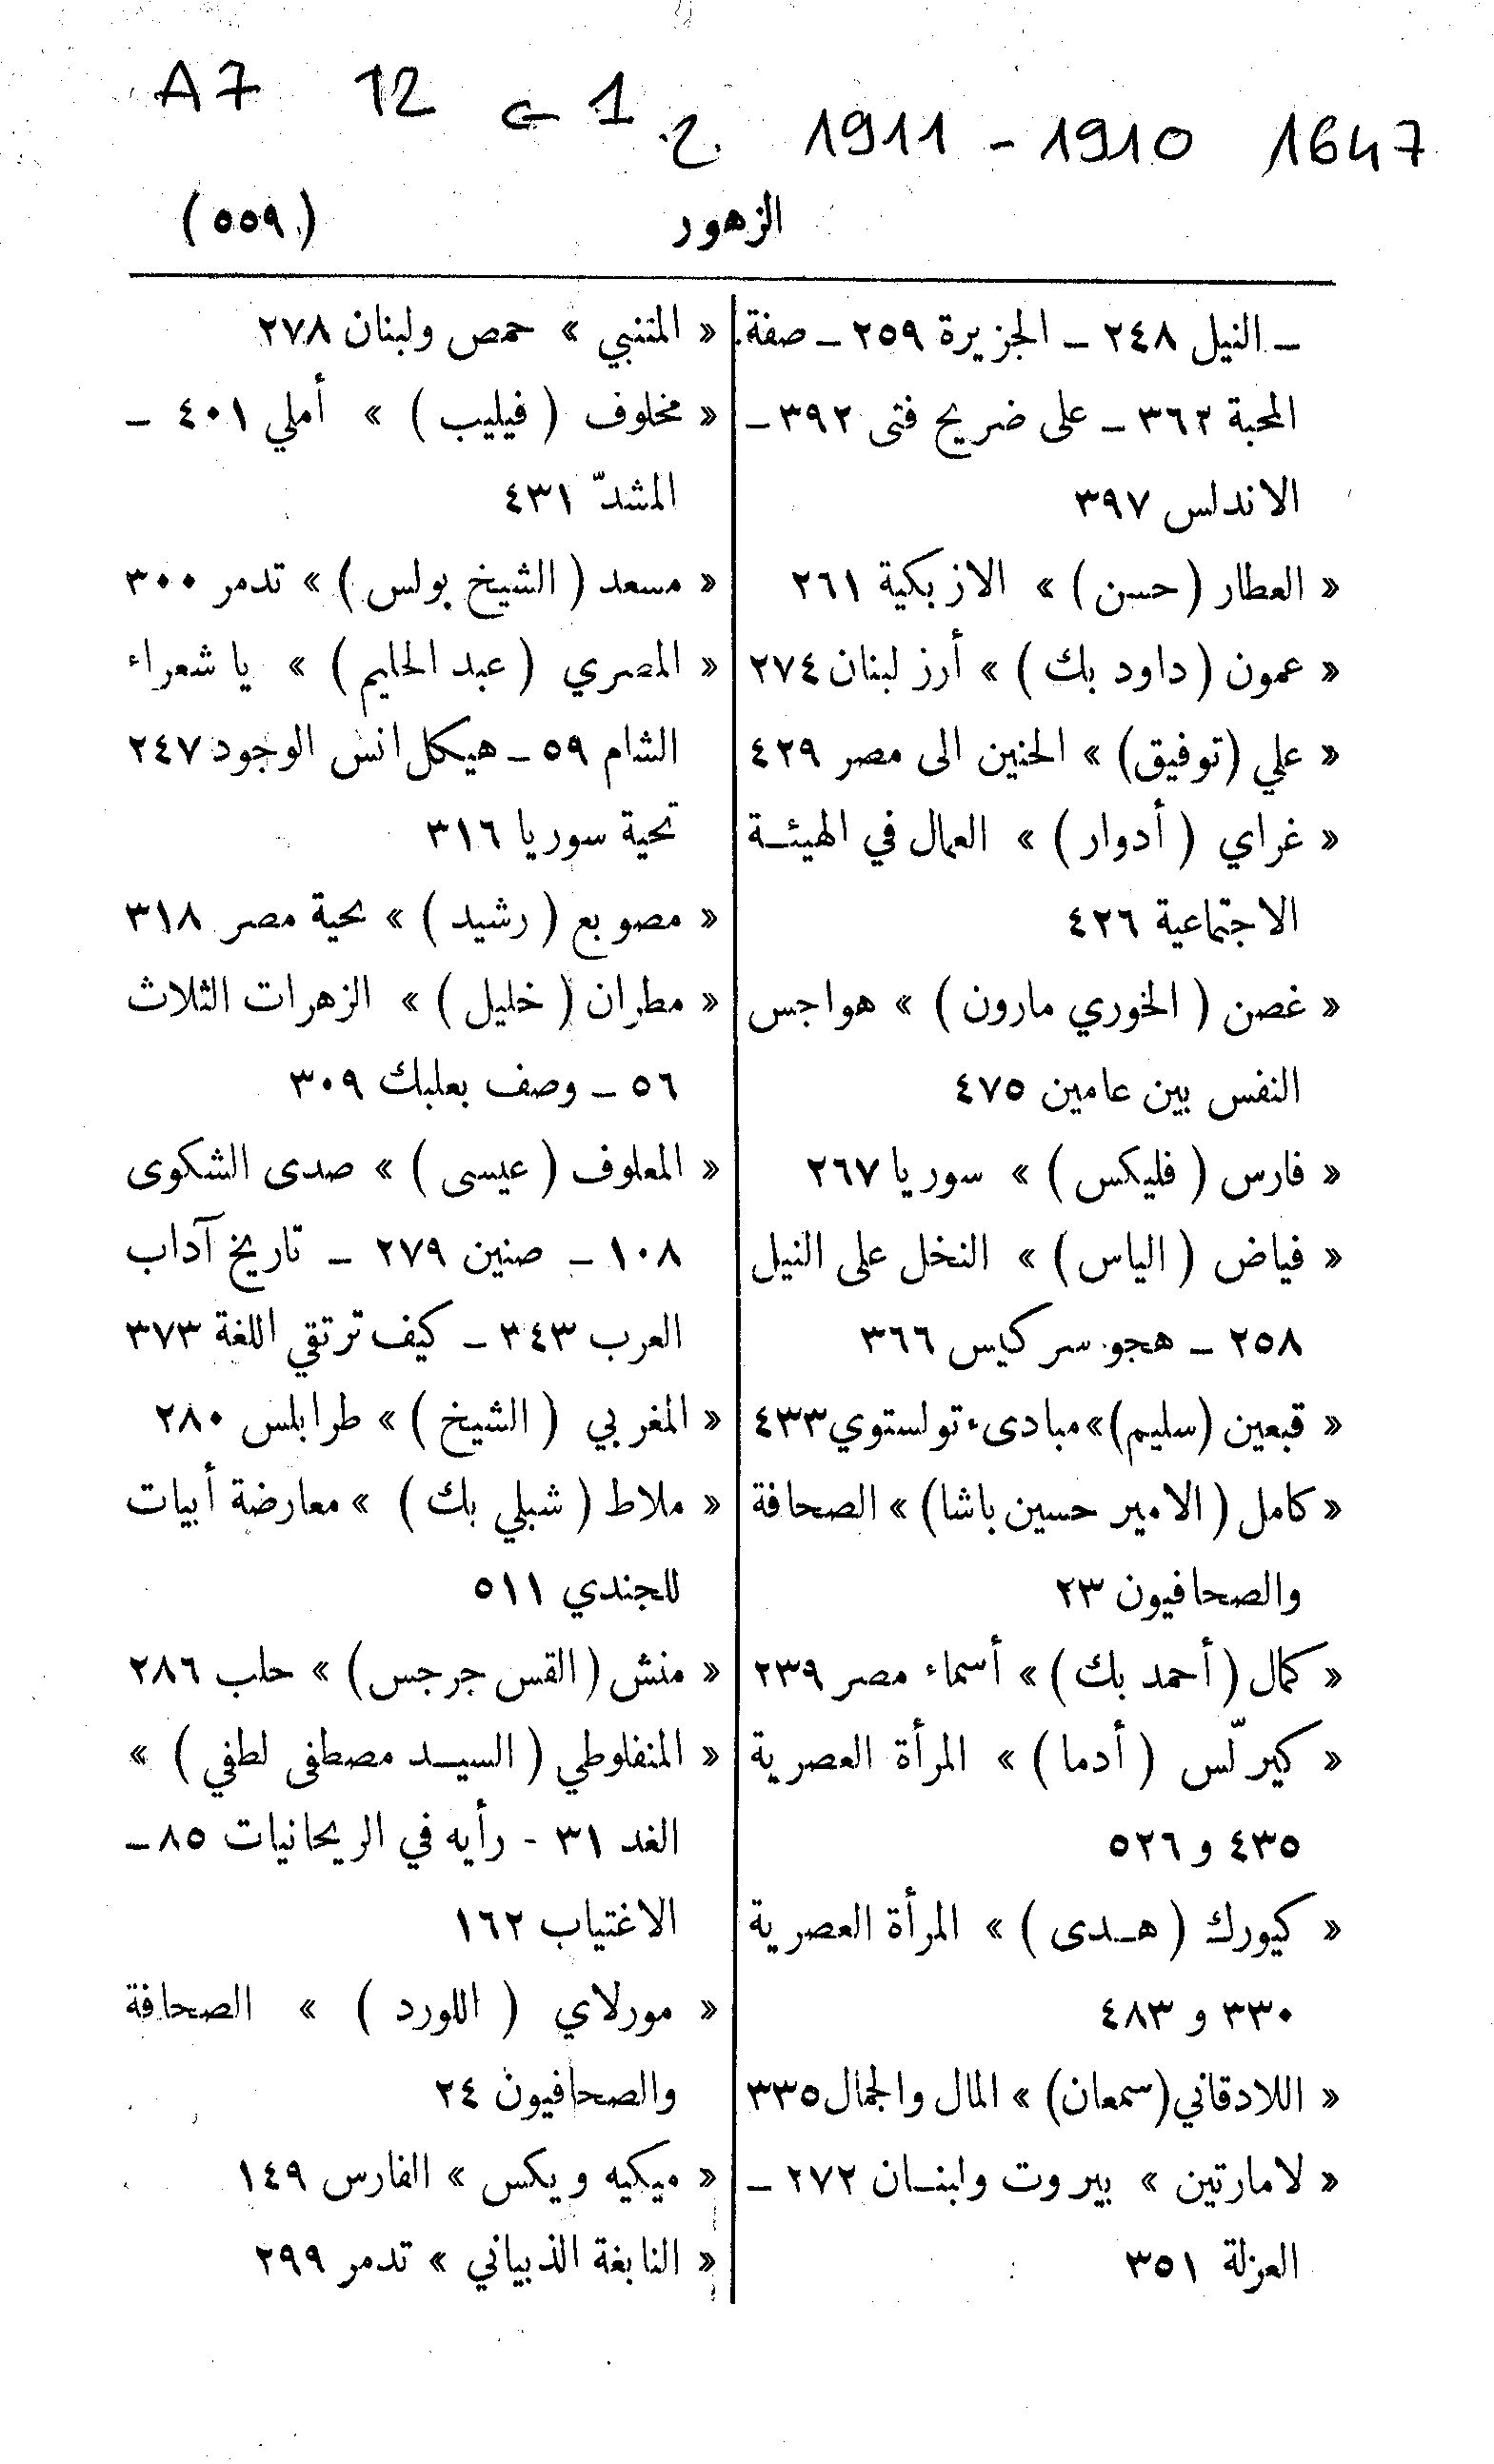 A7 12 ج 1 1911 - 1910 1647
الزهور (٥٥٩)
ـ النيل ٢٤٨ ـ الجزيرة ٢٥٩ ـ صفة
المحبة ٣٦٢ ـ على ضريح فتى ٣٩٢ ـ
الاندلس ٣٩٧
« العطار (حسن) » الازبكية ٢٦١
« عمون (داود بك) » أرز لبنان ٢٧٤
« علي (توفيق) » الحنين الى مصر ٤٢٩
« غراي (أدوار) » العمال في الهيئـة
الاجتماعية ٤٢٦
« غصن (الخوري مارون) » هواجس
النفس بين عامين ٤٧٥
« فارس (فليكس) » سوريا ٢٦٧
« فياض (الياس) » النخل على النيل
٢٥٨ ـ هجو سركيس ٣٦٦
« قبعين (سليم) » مبادىء تولستوي ٤٣٣
« كامل (الامير حسين باشا) » الصحافة
والصحافيون ٢٣
« كمال (أحمد بك) » أسماء مصر ٢٣٩
« كيرلّس (أدما) » المرأة العصرية
٤٣٥ و ٥٢٦
« كيورك (هـدى) » المرأة العصرية
٣٣٠ و ٤٨٣
« اللادقاني (سمعان) » المال والجمال ٣٣٥
« لامارتين » بيروت ولبنـان ٢٧٢ ـ
العزلة ٣٥١
« المتنبي » حمص ولبنان ٢٧٨
« مخلوف (فيليب) » أملي ٤٠١ ـ
المشدّ ٤٣١
« مسعد (الشيخ بولس) » تدمر ٣٠٠
« المصري (عبد الحليم) » يا شعراء
الشام ٥٩ ـ هيكل انس الوجود ٢٤٧
تحية سوريا ٣١٦
« مصوبع (رشيد) » تحية مصر ٣١٨
« مطران (خليل) » الزهرات الثلاث
٥٦ ـ وصف بعلبك ٣٠٩
« المعلوف (عيسى) » صدى الشكوى
١٠٨ ـ صنين ٢٧٩ ـ تاريخ آداب
العرب ٣٤٣ ـ كيف ترتقي اللغة ٣٧٣
« المغربي (الشيخ) » طرابلس ٢٨٠
« ملاط (شبلي بك) » معارضة أبيات
للجندي ٥١١
« منش (القس جرجس) » حلب ٢٨٦
« المنفلوطي (السيـد مصطفى لطفي) »
الغد ٣١ - رأيه في الريحانيات ٨٥ ـ
الاغتياب ١٦٢
« مورلاي (اللورد) » الصحافة
والصحافيون ٢٤
« ميكيه ويكس » الفارس ١٤٩
« النابغة الذبياني » تدمر ٢٩٩